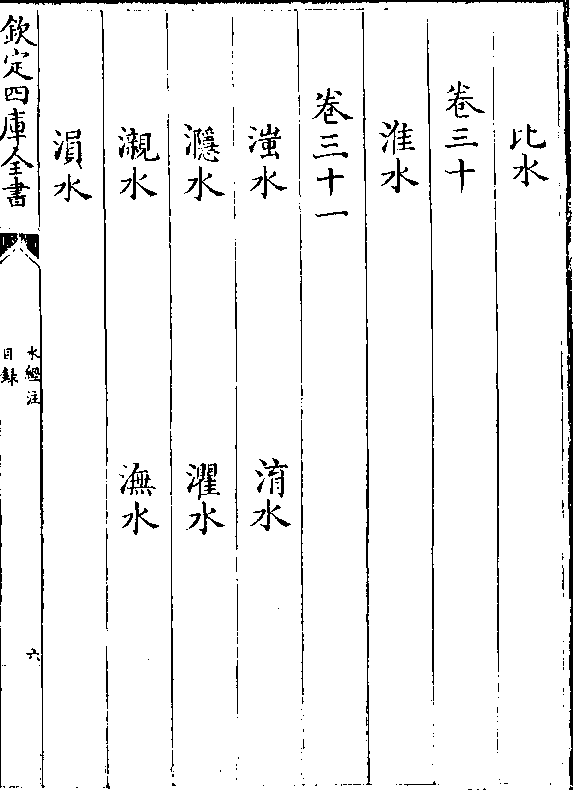 比水
卷三十
淮水
卷三十一
滍水 淯水
㶏水 灈水
瀙水 潕水
溳水
欽定四庫全書
水經注
目録
六